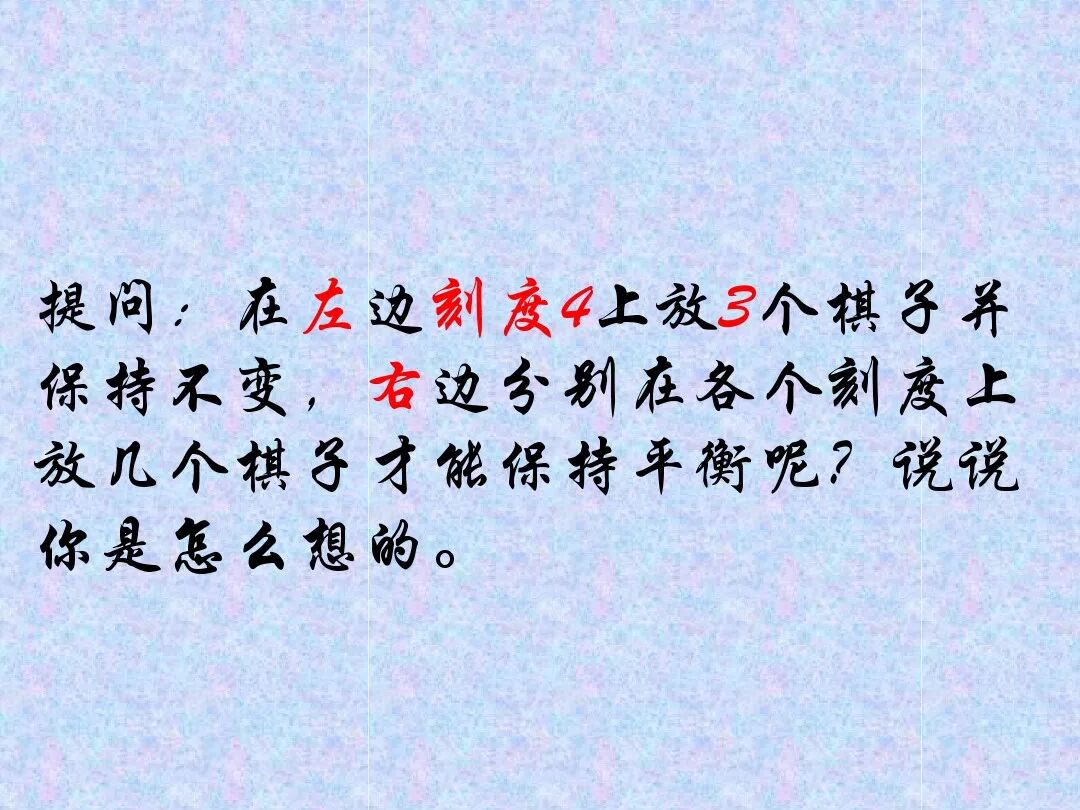 提问：在左边刻度4上放3个棋子并
保持不变，右边分别在各个刻度上
放几个棋子才能保持平衡呢？说说
你是怎么想的。